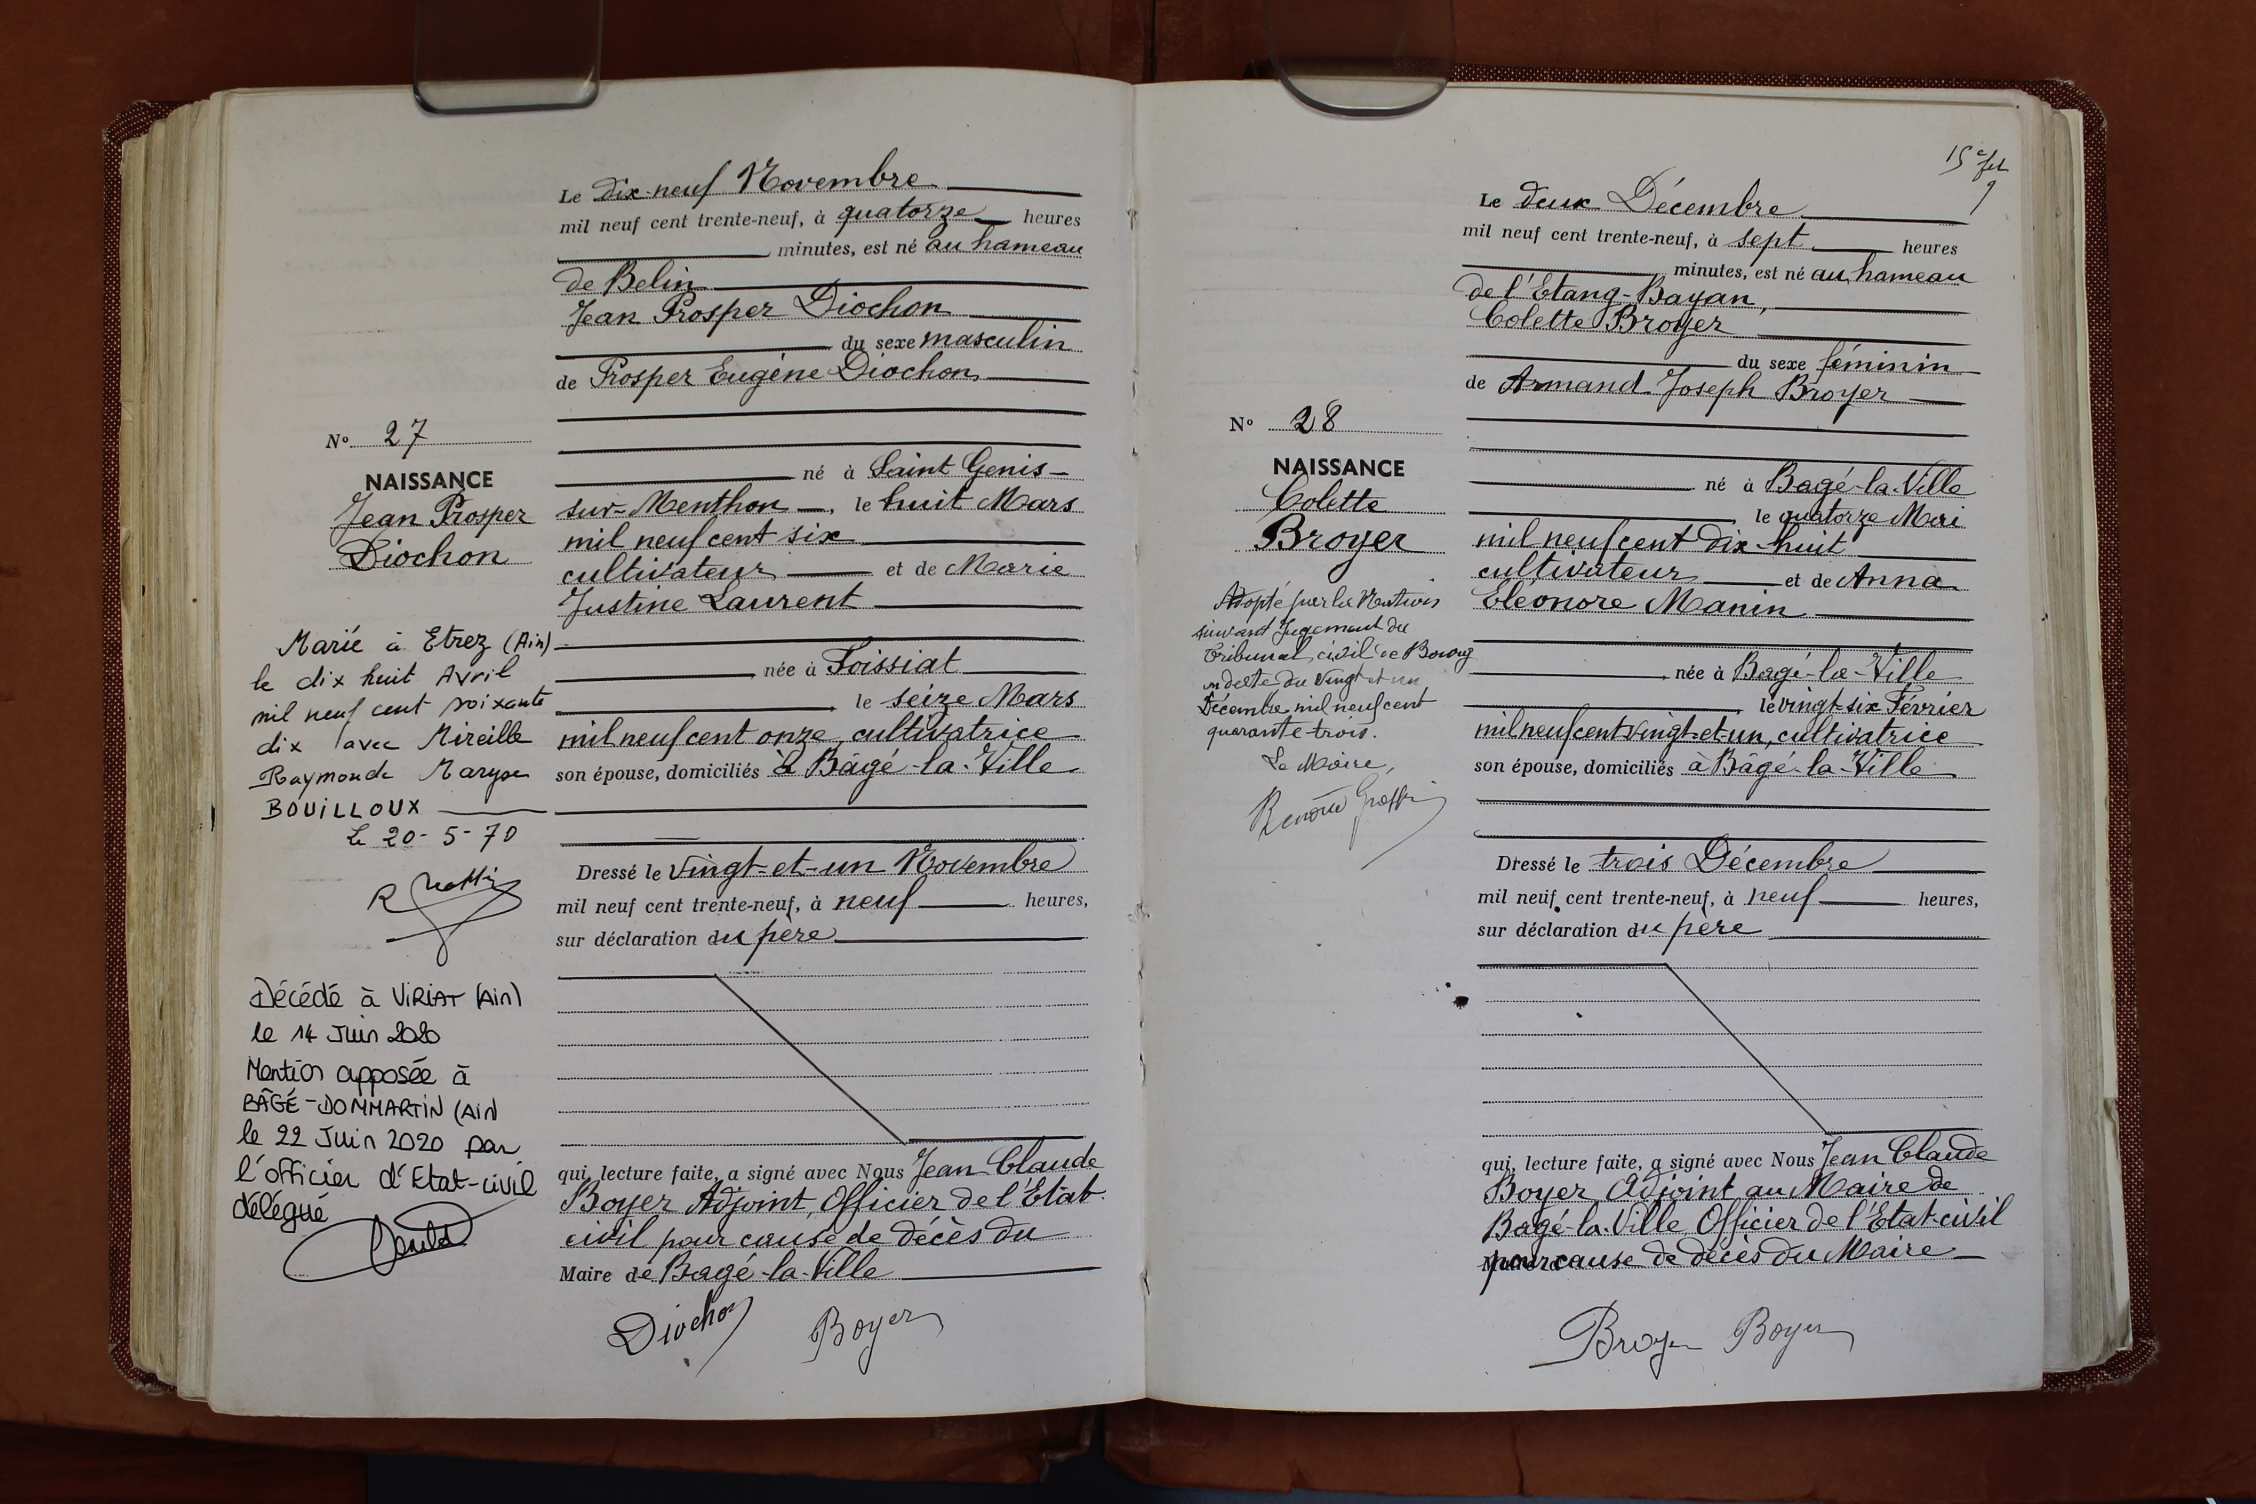 Le dix-neuf Novembre
mil neuf cent trente-neuf, à quatorze heures
minutes, est né au hameau
de Belin
Jean Prosper Diochon
du sexe masculin
de Prosper Eugène Diochon
né à Saint Genis-
sur-Menthon, le huit Mars
mil neuf cent six
cultivateur et de Marie
Justine Laurent
née à Foissiat
le seize Mars
mil neuf cent onze, cultivatrice
son épouse, domiciliés à Bâgé-la-Ville
Dressé le vingt-et-un Novembre
mil neuf cent trente-neuf, à neuf heures,
sur déclaration du père
qui, lecture faite, a signé avec Nous Jean-Claude
Boyer Adjoint, Officier de l'Etat-
civil pour cause de décès du
Maire de Bagé-la-Ville
Diochon Boyer
No 27
NAISSANCE
Jean Prosper
Diochon
Marié à Etrez (Ain)
le dix huit Avril
mil neuf cent soixante
dix avec Mireille
Raymonde Maryse
BOUILLOUX
Le 20-5-70
Décédé à VIRIAT (Ain)
le 14 Juin 2020
Mention apposée à
BÂGÉ-DOMMARTIN (Ain)
le 22 Juin 2020 par
l'officier d'Etat-civil
délégué
15e
Le deux Décembre
mil neuf cent trente-neuf, à sept heures
minutes, est né au hameau
de l'Etang-Bayan,
Colette Broyer
du sexe féminin
de Armand Joseph Broyer
né à Bagé-la-Ville
le quatorze Mai
mil neuf cent dix-huit
cultivateur et de Anna
Eléonore Manin
née à Bagé-la-Ville
le vingt-six Février
mil neuf cent vingt-et-un, cultivatrice
son épouse, domiciliés à Bâgé-la-Ville
Dressé le trois Décembre
mil neuf cent trente-neuf, à neuf heures,
sur déclaration du père
qui, lecture faite, a signé avec Nous Jean Claude
Boyer, Adjoint au Maire de
Bagé-la-Ville, Officier de l'Etat-civil
pour cause de décès du Maire
Broyer Boyer
No 28
NAISSANCE
Colette
Broyer
Adopté par la Nation
suivant Jugement du
Tribunal civil de Bourg
en date du vingt et un
Décembre mil neuf cent
quarante-trois.
Le Maire,